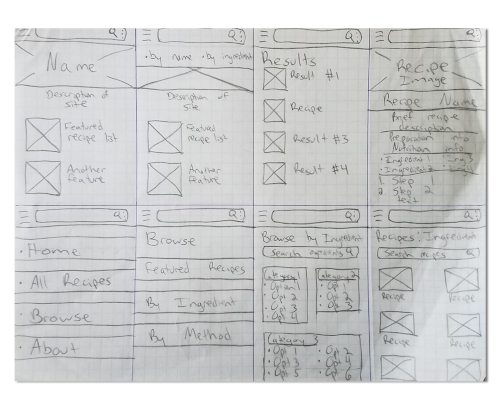 Name
Description of
site
Featured
recipe list
Another
feature
• by name • by ingredient
Description of
site
Featured
recipe list
Another
feature
Results
Result #1
Recipe
Result #3
Result #4
Recipe
Image
Recipe Name
Brief recipe
description
Preparation info
Nutrition info
• Ingredient
• Ingredient 2
1. Step 1
2. Step 2
text
• Home
• All Recipes
Browse
• About
Browse
Featured Recipes
By Ingredient
By Method
Browse by Ingredient
Search
Category 1
• Option 1
• Opt 2
• Opt 3
• Opt 4
Category 2
• Opt 1
• Opt 2
• Opt 3
Category 3
• Opt 1 • Opt 2
• Opt 3 • Opt 4
• Opt 5 • Opt 6
Recipes: Ingredient
Search
Recipe Recipe
Recipe Recipe